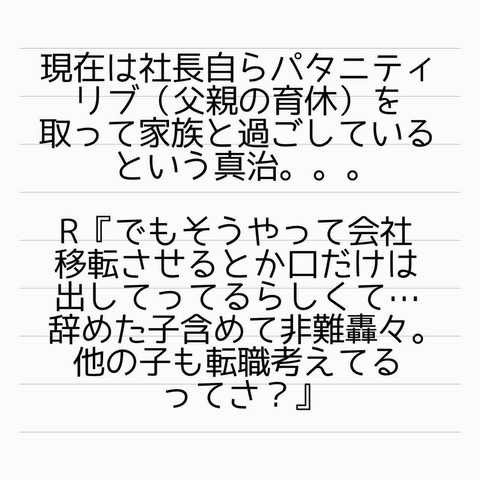 現在は社長自らパタニティ
リブ（父親の育休）を
取って家族と過ごしている
という真治。。。
R『でもそうやって会社
移転させるとか口だけは
出してってるらしくて…
辞めた子含めて非難轟々。
他の子も転職考えてる
ってさ？』